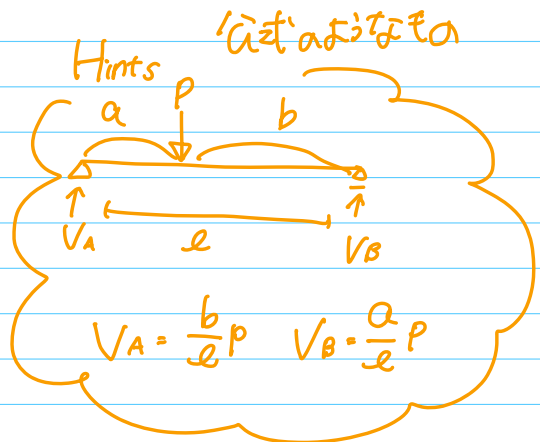 公式のようなもの
Hints
P
a
b
VA
l
VB
VA = b/l P VB = a/l P